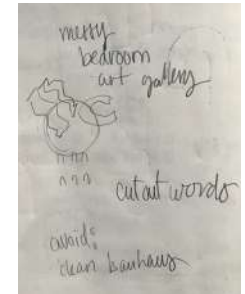 messy
bedroom
art gallery
cut out words
avoid:
clean bauhaus